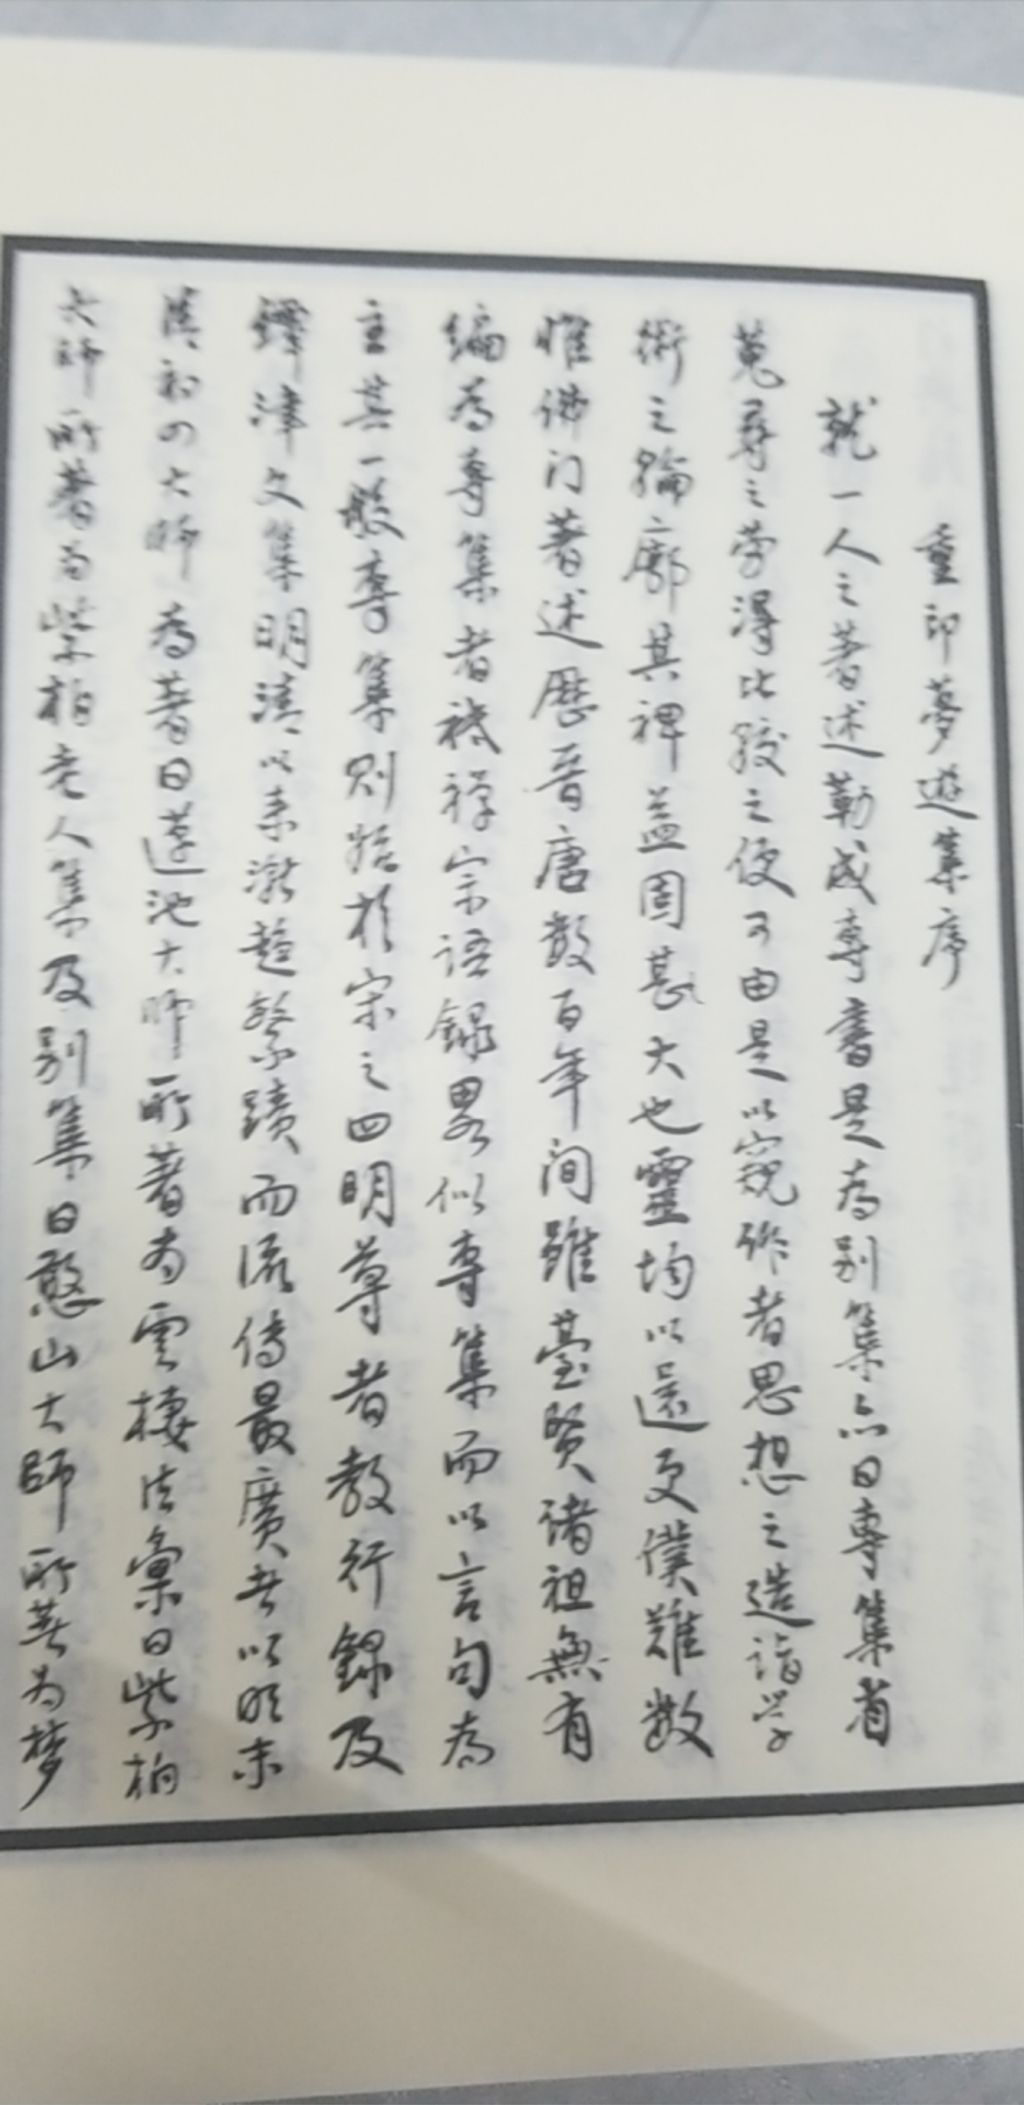 重印夢遊集序
就一人之著述勒成專書是為別集亦曰專集省
蒐尋之勞得比較之便可由是以窺作者思想之造詣学
術之輪廓其裨益固甚大也靈均以還更僕難數
惟佛门著述歷晋唐數百年间雖臺賢諸祖無有
編為專集者被禅宗语録畧似專集而以言句為
主其一般專集則始於宋之四明尊者教行録及
鐔津文集明清以来漸趋繁蹟而流傳最廣者以明末
清初四大師為著曰蓮池大师所著為雲棲法彙曰紫柏
大师所著為紫柏老人集及别集曰憨山大師所著为梦